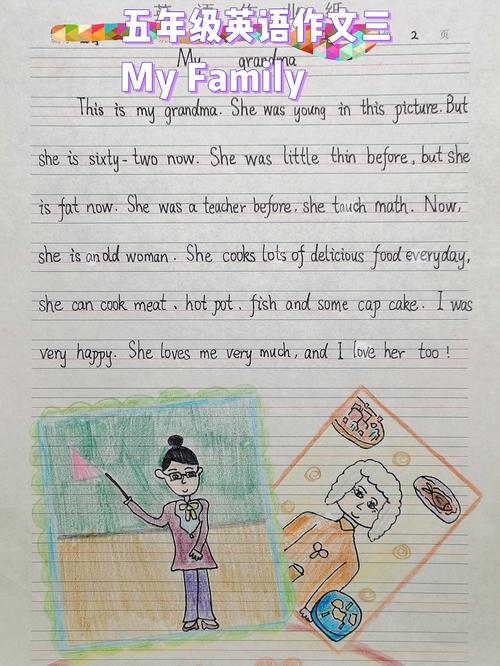 英 语 作 业 纸
五年级英语作文三
2 页
My grandma
My Family
This is my grandma. She was young in this picture. But
she is sixty-two now. She was little thin before, but she
is fat now. She was a teacher before, she tauch math. Now,
she is an old woman. She cooks lots of delicious food everyday,
she can cook meat、hot pot、fish and some cap cake. I was
very happy. She loves me very much, and I love her too!